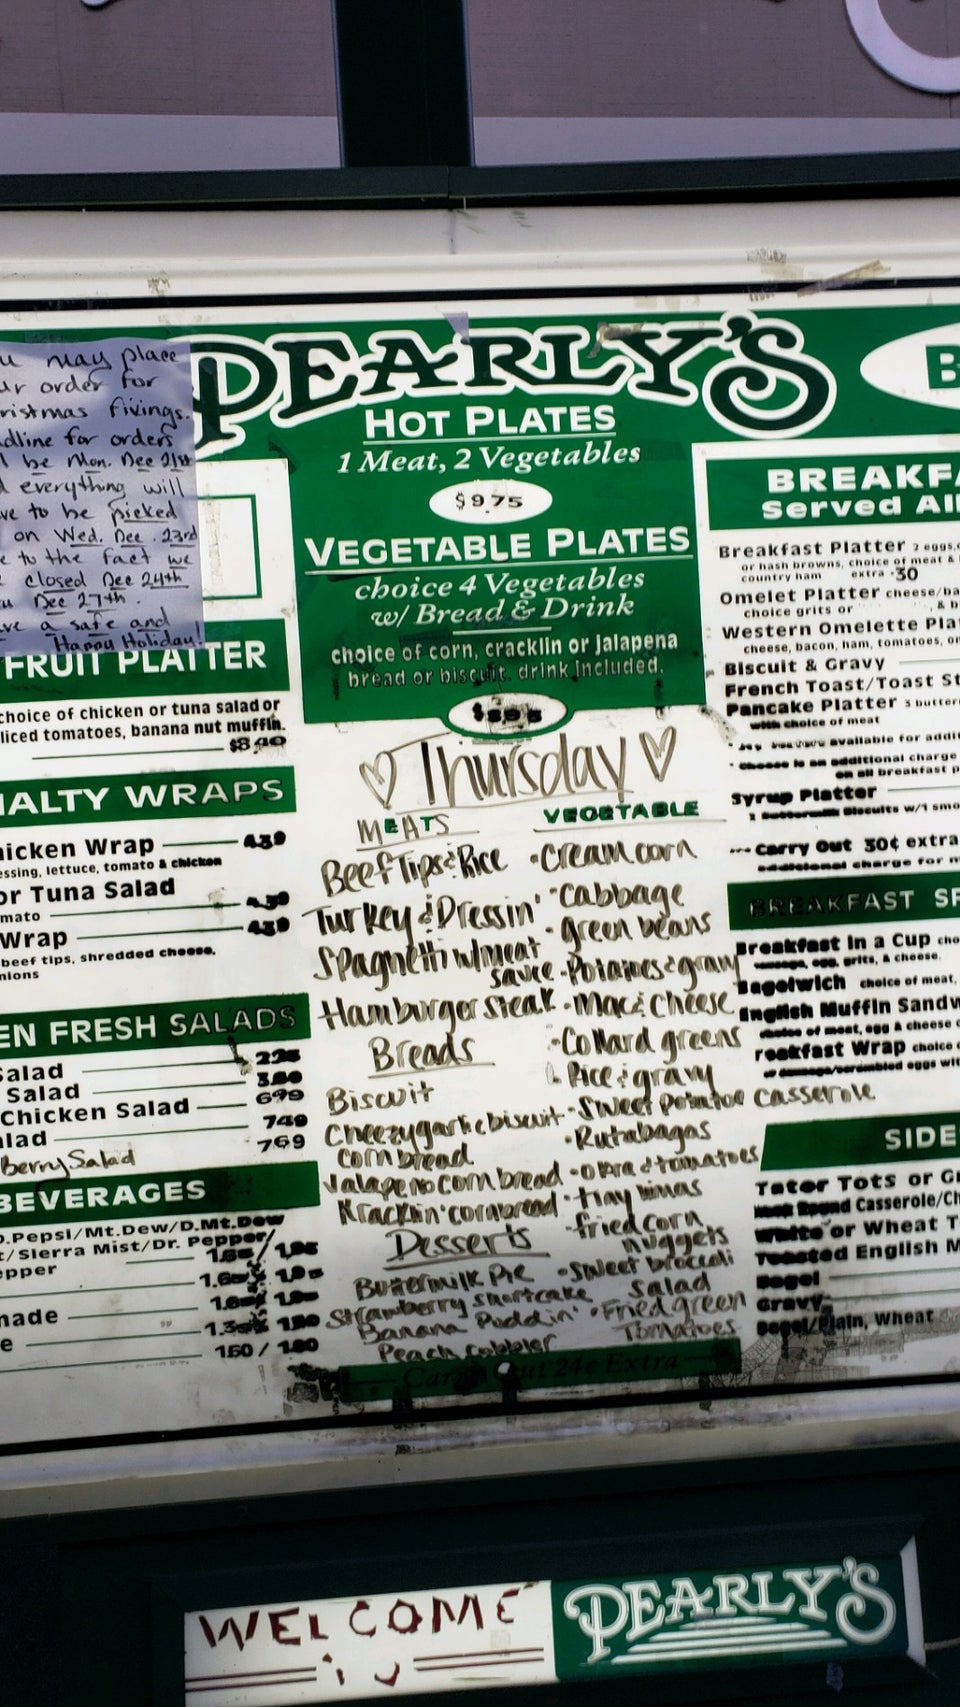 PEARLY'S
HOT PLATES
1 Meat, 2 Vegetables
$9.75
VEGETABLE PLATES
choice 4 Vegetables
w/ Bread & Drink
choice of corn, cracklin or jalapena
bread or biscuit. drink included.
♡ Thursday ♡
MEATS
Beef Tips & Rice
Turkey & Dressin'
Spaghetti w/meat
sauce
Hamburger steak
Breads
Biscuit
Cheezy garlic biscuit
corn bread
Jalapeno corn bread
Kracklin' cornbread
Desserts
Buttermilk Pie
Strawberry shortcake
Banana Puddin'
Peach cobbler
VEGETABLE
Cream corn
Cabbage
green beans
Potatoes & gravy
Mac & Cheese
Collard greens
Rice & gravy
Sweet potatoe casserole
Rutabagas
okra & tomatoes
tiny limas
fried corn
nuggets
Sweet broccoli
Salad
Fried green
Tomatoes
Carry Out 24¢ Extra
may place
order for
fixings.
for orders
be Mon. Dec 21st
everything will
to be picked
on Wed. Dec. 23rd
to the fact we
closed Dec 24th
Dec 27th.
a safe and
Happy Holiday!
FRUIT PLATTER
choice of chicken or tuna salad or
tomatoes, banana nut muffin.
$8.40
WRAPS
Wrap 4.39
lettuce, tomato & chicken
or Tuna Salad
4.39
Wrap 4.39
beef tips, shredded cheese.
FRESH SALADS
Salad
Salad
Chicken Salad 699
749
Berry Salad 769
BEVERAGES
Pepsi/Mt.Dew/D.Mt.Dew
Sierra Mist/Dr. Pepper/
160 / 180
B
BREAKFA
Served All
Breakfast Platter 2 eggs,
or hash browns, choice of meat &
country ham extra .30
Omelet Platter cheese/ba
choice grits or & b
Western Omelette Pla
cheese, bacon, ham, tomatoes, on
Biscuit & Gravy
French Toast/Toast St
Pancake Platter 3 butter
with choice of meat
available for addi
Cheese is an additional charge
on all breakfast p
Syrup Platter
2 Buttermilk Biscuits w/1 smo
Carry Out 30¢ extra
additional charge for
BREAKFAST SP
Breakfast in a Cup cho
sausage, egg, grits, & cheese.
Bagelwich choice of meat,
English Muffin Sandw
choice of meat, egg & cheese
Wrap choice
SIDE
Tater Tots or Gr
Casserole/Ch
White or Wheat T
Toasted English M
Bagel
Gravy
Bagel/Plain, Wheat
WELCOME
PEARLY'S